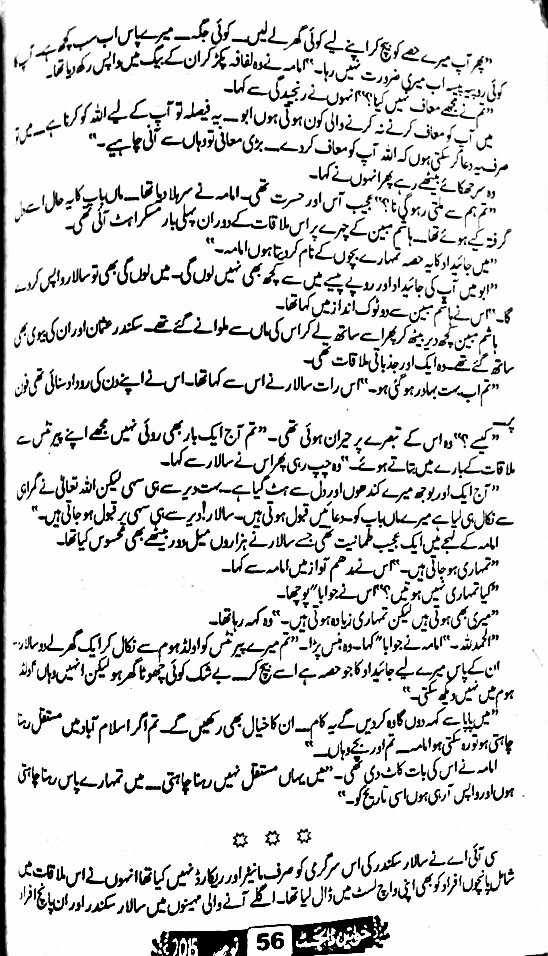 "پھر آپ میرے حصے کو بیچ کر اپنے لیے کوئی گھر لے لیں۔۔۔ کوئی جگہ۔۔۔ میرے پاس اب سب کچھ ہے۔ آپ کا
کوئی روپیہ پیسہ اب میری ضرورت نہیں رہا۔" امامہ نے وہ لفافہ پکڑ کر ان کے بیگ میں واپس رکھ دیا تھا۔
"تم نے مجھے معاف نہیں کیا؟" انہوں نے رنجیدگی سے کہا۔
میں آپ کو معاف کرنے نہ کرنے والی کون ہوتی ہوں ابو۔۔۔ یہ فیصلہ تو آپ کے لیے اللہ کو کرنا ہے۔۔۔ میں تو
صرف یہ دعا کر سکتی ہوں کہ اللہ آپ کو معاف کر دے۔۔۔ بڑی معافی تو وہاں سے آنی چاہیے۔"
وہ سر جھکائے بیٹھے رہے پھر انہوں نے کہا۔
"تم ہم سے ملتی رہو گی نا؟" عجیب آس اور حسرت تھی۔ امامہ نے سر ہلا دیا تھا۔۔۔ ماں باپ کا یہ حال اسے دل
گرفتہ کیے ہوئے تھا۔۔۔ ہاشم مبین کے چہرے پر اس ملاقات کے دوران پہلی بار مسکراہٹ آئی تھی۔
"میں جائیداد کا یہ حصہ تمہارے بچوں کے نام کر دیتا ہوں امامہ۔"
"ابو میں آپ کی جائیداد اور روپے پیسے میں سے کچھ بھی نہیں لوں گی۔ میں لوں گی بھی تو سالار واپس کر دے
گا۔" اس نے ہاشم مبین سے دو ٹوک انداز میں کہا تھا۔
ہاشم مبین کچھ دیر بیٹھ کر پھر اسے ساتھ لے کر اس کی ماں سے ملوانے گئے تھے۔ سکندر عثمان اور ان کی بیوی بھی
ساتھ گئے تھے۔ وہ ایک اور جذباتی ملاقات تھی۔
"تم اب بہت بہادر ہو گئی ہو۔" اس رات سالار نے اس سے کہا تھا۔ اس نے اپنے دن کی روداد سنائی تھی فون
پر۔
"کیسے؟" وہ اس کے تبصرے پر حیران ہوئی تھی۔ "تم آج ایک بار بھی روئی نہیں مجھے اپنے پیرنٹس سے
ملاقات کے بارے میں بتاتے ہوئے۔" وہ چپ رہی پھر اس نے سالار سے کہا۔
"آج ایک اور بوجھ میرے کندھوں اور دل سے ہٹ گیا ہے۔ بہت دیر سے ہی سہی لیکن اللہ تعالیٰ نے گمراہی
سے نکال ہی لیا ہے میرے ماں باپ کو۔ دعائیں قبول ہوتی ہیں۔ سالار! دیر سے ہی سہی پر قبول ہو جاتی ہیں۔"
امامہ کے لہجے میں ایک عجیب طمانیت تھی جسے سالار نے ہزاروں میل دور بیٹھے بھی محسوس کیا تھا۔
"تمہاری ہو جاتی ہیں۔" اس نے مدھم آواز میں امامہ سے کہا۔
"کیا تمہاری نہیں ہوتیں؟" اس نے جواباً پوچھا۔
"میری بھی ہوتی ہیں لیکن تمہاری زیادہ ہوتی ہیں۔" وہ کہہ رہا تھا۔
"الحمد للہ۔" امامہ نے جواباً کہا۔ وہ ہنس پڑا۔ "تم میرے پیرنٹس کو اولڈ ہوم سے نکال کر ایک گھر لے دو سالار۔
ان کے پاس میرے لیے جائیداد کا جو حصہ ہے اسے بیچ کر۔۔۔ بے شک کوئی چھوٹا گھر ہو لیکن انہیں وہاں اولڈ
ہوم میں نہیں دیکھ سکتی۔"
"میں پاپا سے کہہ دوں گا وہ کر دیں گے یہ کام۔۔۔ ان کا خیال بھی رکھیں گے۔ تم اگر اسلام آباد میں مستقل رہنا
چاہتی ہو تو رہ سکتی ہو امامہ۔۔۔ تم اور بچے وہاں۔۔۔"
امامہ نے اس کی بات کاٹ دی تھی۔ "میں یہاں مستقل نہیں رہنا چاہتی۔۔۔ میں تمہارے پاس رہنا چاہتی
ہوں اور واپس آ رہی ہوں اسی تاریخ کو۔"
☆ ☆ ☆
سی آئی اے نے سالار سکندر کی اس سرگرمی کو صرف مانیٹر اور ریکارڈ نہیں کیا تھا انہوں نے اس ملاقات میں
شامل پانچوں افراد کو بھی اپنی واچ لسٹ میں ڈال لیا تھا۔ اگلے آنے والی مہینوں میں سالار سکندر اور ان پانچ افراد
خواتین ڈائجسٹ 56 نومبر 2015